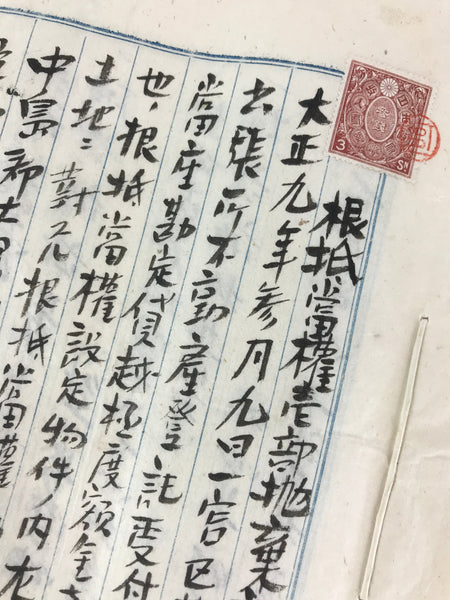 根抵當權壱部抛棄
大正九年参月九日一宮区
出張所不動産登記受付
當座勘定貸越極度額金
也、根抵當權設定物件ノ内左
土地ニ対スル根抵當權
中島郡大里
3 Sn